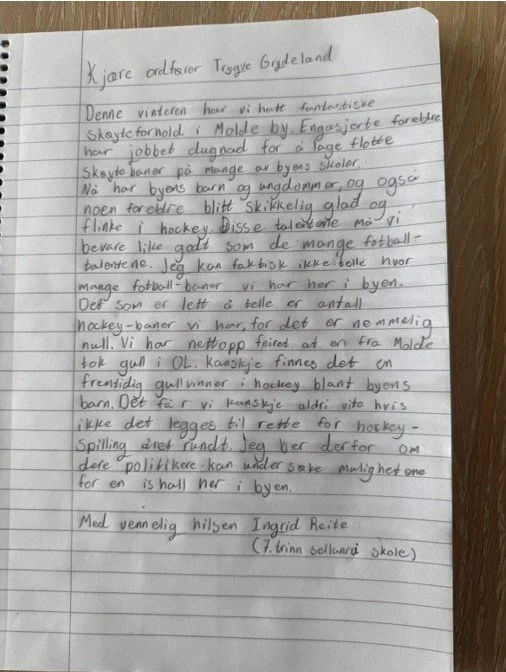 Kjære ordfører Trygve Grydeland
Denne vinteren har vi hatt fantastiske
skøyteforhold i Molde by. Engasjerte foreldre
har jobbet dugnad for å lage flotte
skøytebaner på mange av byens skoler.
Nå har byens barn og ungdommer, og også
noen foreldre blitt skikkelig glad og
flinke i hockey. Disse talentene må vi
bevare like godt som de mange fotball-
talentene. Jeg kan faktisk ikke telle hvor
mange fotball-baner vi har her i byen.
Det som er lett å telle er antall
hockey-baner vi har, for det er nemmelig
null. Vi har nettopp feiret at en fra Molde
tok gull i OL. Kanskje finnes det en
fremtidig gullvinner i hockey blant byens
barn. Det får vi kanskje aldri vite hvis
ikke det legges til rette for hockey-
spilling året rundt. Jeg ber derfor om
dere politikere kan undersøke mulighetene
for en ishall her i byen.
Med vennelig hilsen Ingrid Reite
(7.trinn sellanrå skole)